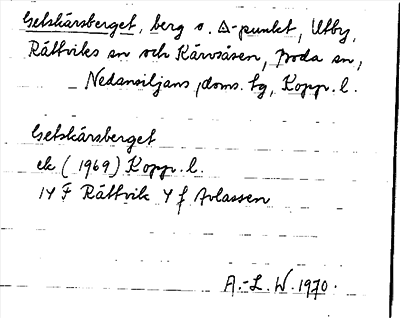 Getskärsberget, berg o. △-punkt, Utby,
Rättviks sn och Kårvsåsen, Boda sn,
Nedansiljans doms. tg, Kopp. l.
Getskärsberget
ek (1969) Kopp. l.
14 F Rättvik 4 f Avlassen
A.-L. W. 1970.